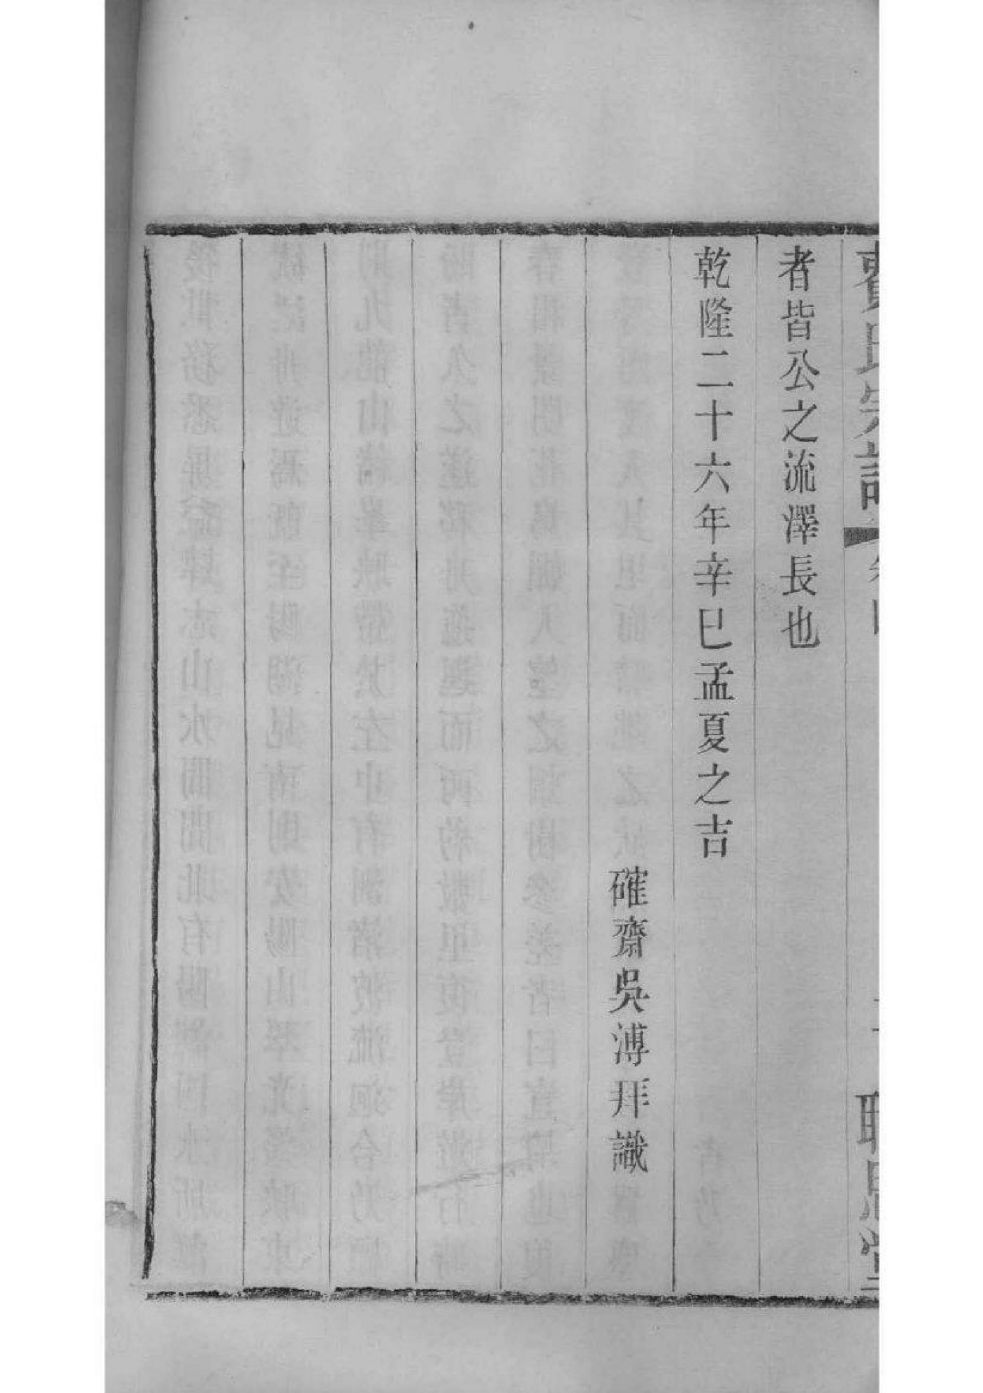 費氏宗譜
者皆公之流澤長也
乾隆二十六年辛巳孟夏之吉
確齋吳溥拜識